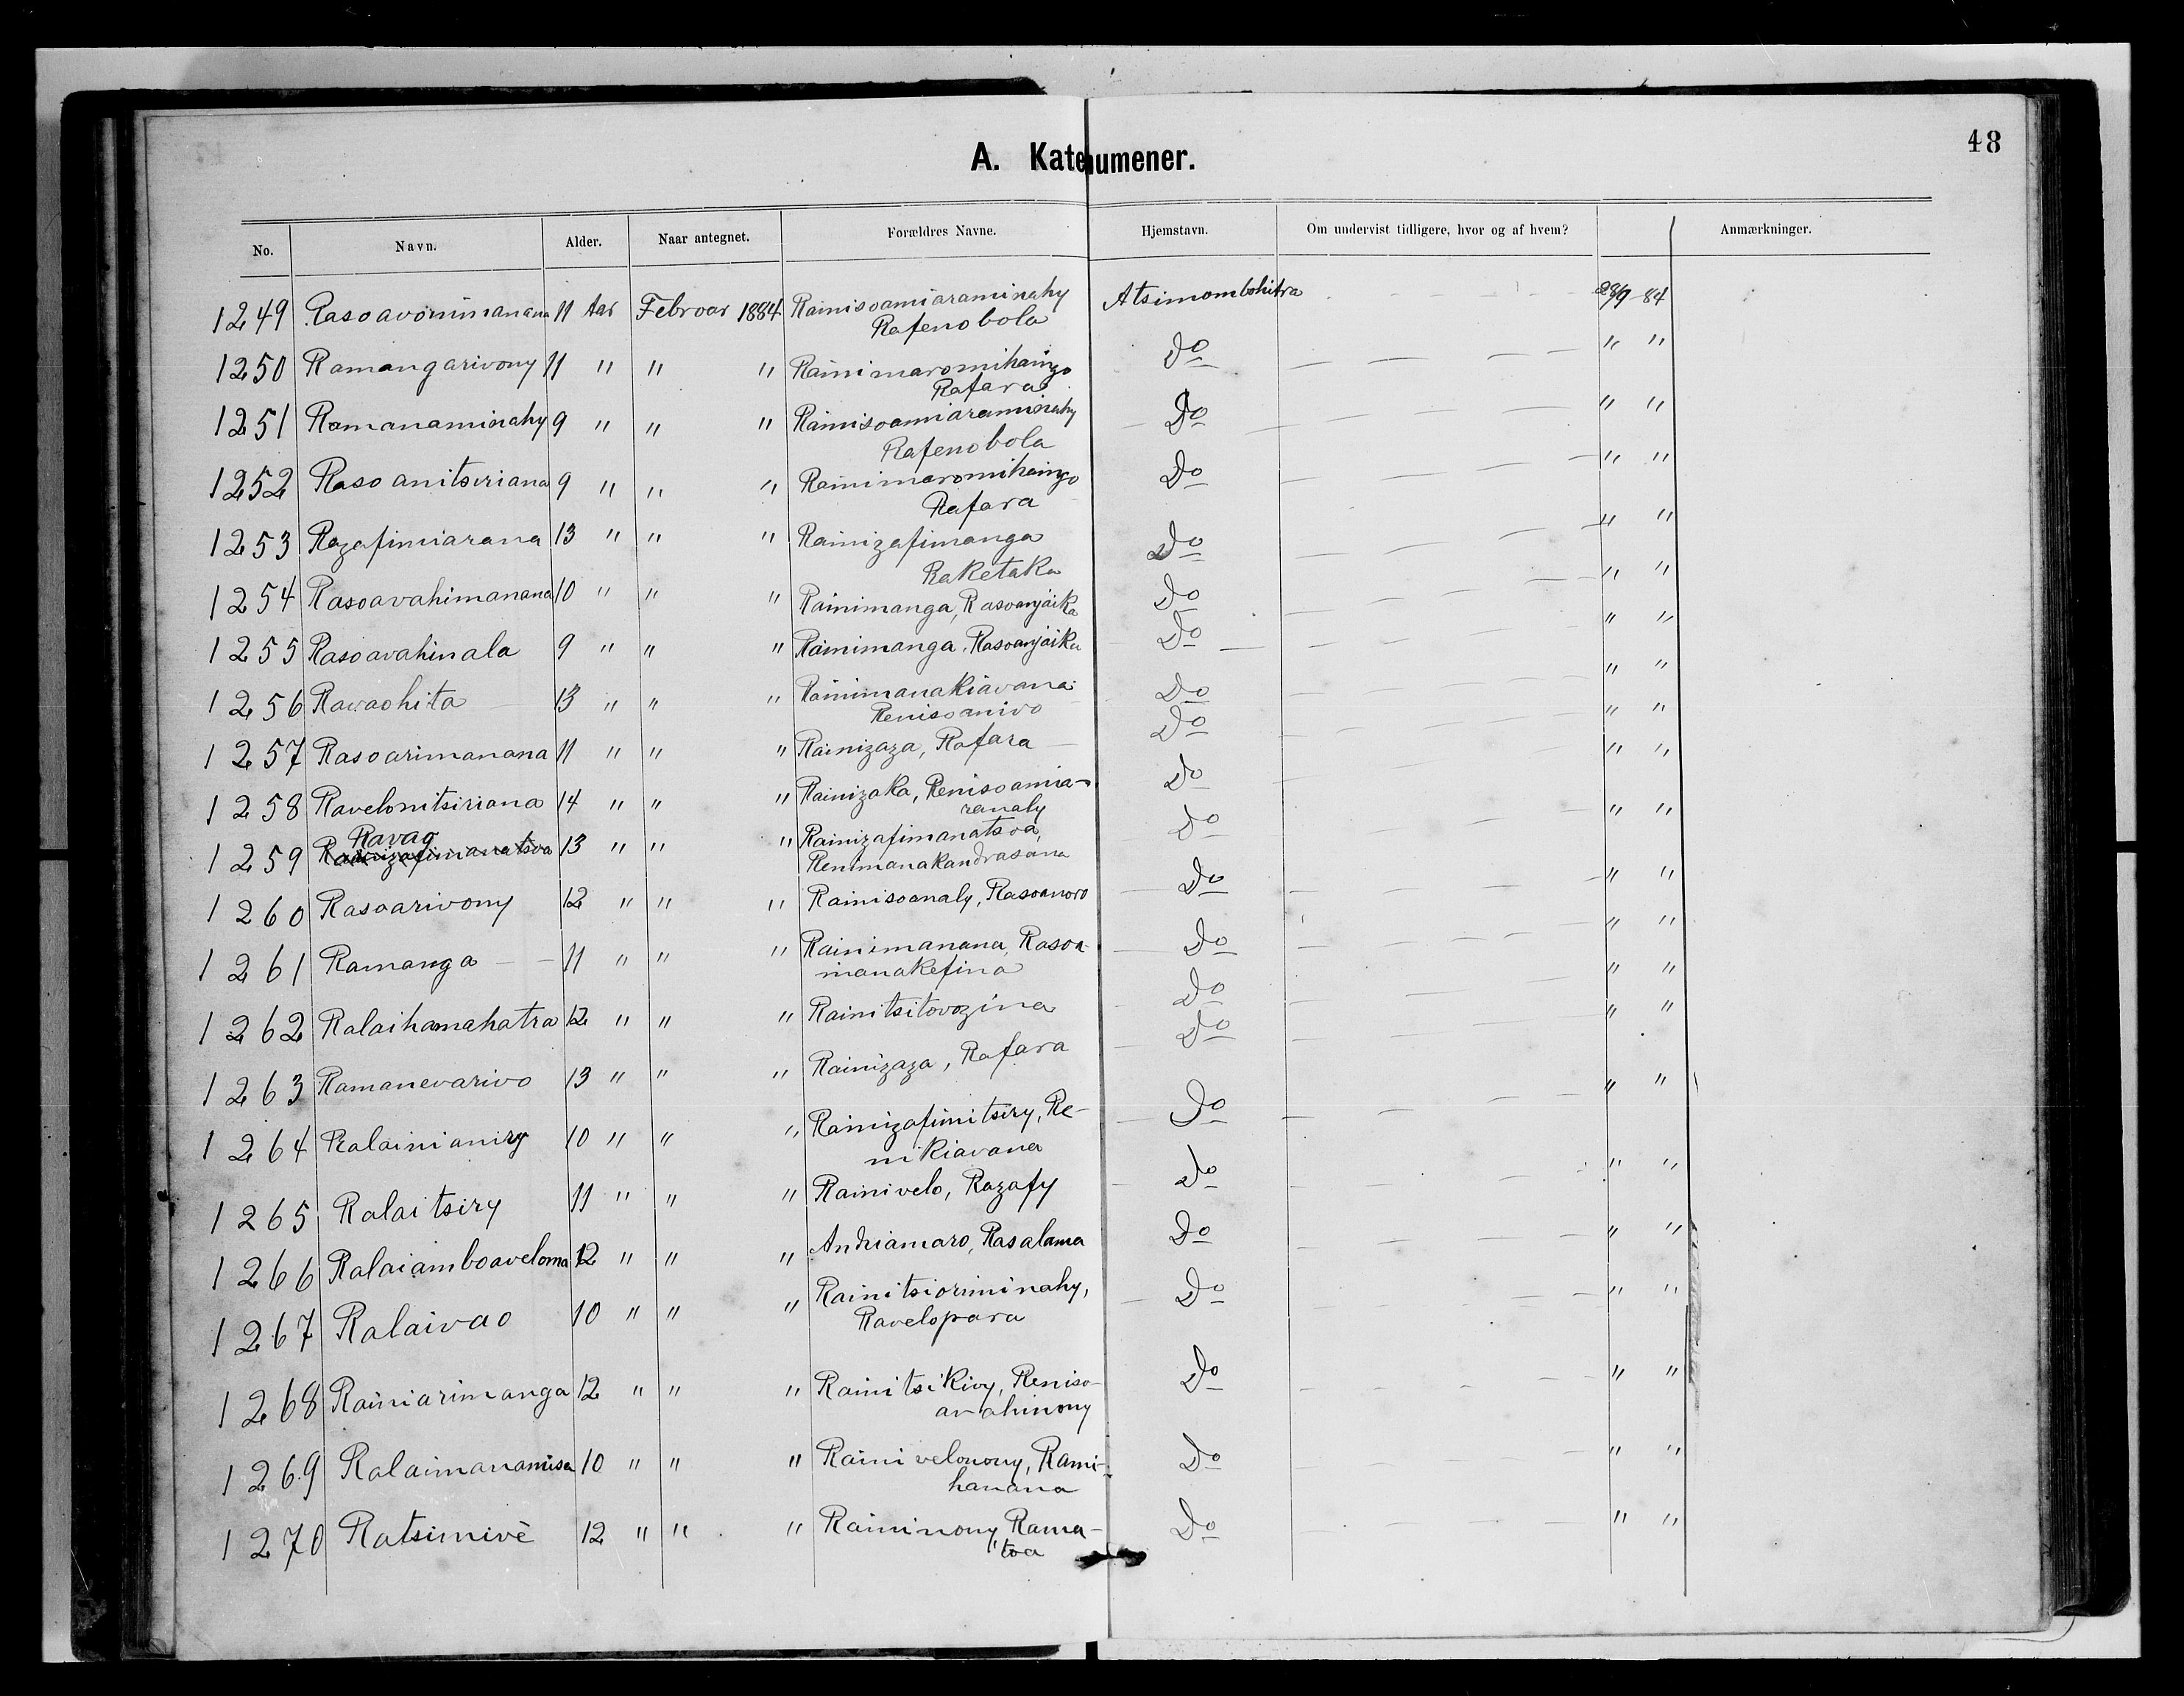 48
A. Katekumener.
No. Navn. Alder. Naar antegnet. Forældres Navne. Hjemstavn. Om undervist tidligere, hvor og af hvem? Anmærkninger.
1249 Rasoavonimanana 11 Aar Februar 1884 Rainisoamiaraminahy Atsimombohitra 28/9-84
Rafenobola
1250 Ramangarivony 11 " " " Rainimaromihaingo Do " "
Rafara
1251 Ramanaminahy 9 " " " Rainisoamiaraminahy Do " "
Rafenobola
1252 Rasoanitsiriana 9 " " " Rainimaromihaingo Do " "
Rafara
1253 Razafimiarana 13 " " " Rainizafimanga Do " "
Raketaka
1254 Rasoavahimanana 10 " " " Rainimanga, Rasoanjaika Do " "
1255 Rasoavahinala 9 " " " Rainimanga, Rasoanjaika Do " "
1256 Ravaohita 13 " " " Rainimanakiavana Do " "
Renisoanivo
1257 Rasoarimanana 11 " " " Rainizaza, Rafara Do " "
1258 Ravelonitsiriana 14 " " " Rainizaka, Renisoamia- Do " "
ranaly
Ravao
1259 Rainizafimanatsoa 13 " " " Rainizafimanatsoa, Do " "
Renimanakandrasana
1260 Rasoarivony 12 " " " Rainisoanaly, Rasoanoro Do " "
1261 Ramanga 11 " " " Rainimanana, Rasoa- Do " "
manakefina
1262 Ralaihamahatra 12 " " " Rainitsitovozina Do " "
1263 Ramanevarivo 13 " " " Rainizaza, Rafara Do " "
1264 Ralainianizy 10 " " " Rainizafinitsiry, Re- Do " "
nikiavana
1265 Ralaitsiry 11 " " " Rainivelo, Razafy Do " "
1266 Ralaiamboaveloma 12 " " " Andriamaro, Rasalama Do " "
1267 Ralaivao 10 " " " Rainitsioriminahy, Do " "
Ravelopara
1268 Rainiarimanga 12 " " " Rainitsikivy, Reniso- Do " "
avahinony
1269 Ralaimanamisa 10 " " " Rainivelonony, Rami- Do " "
hanana
1270 Ratsimivè 12 " " " Raininony, Rama- Do " "
toa